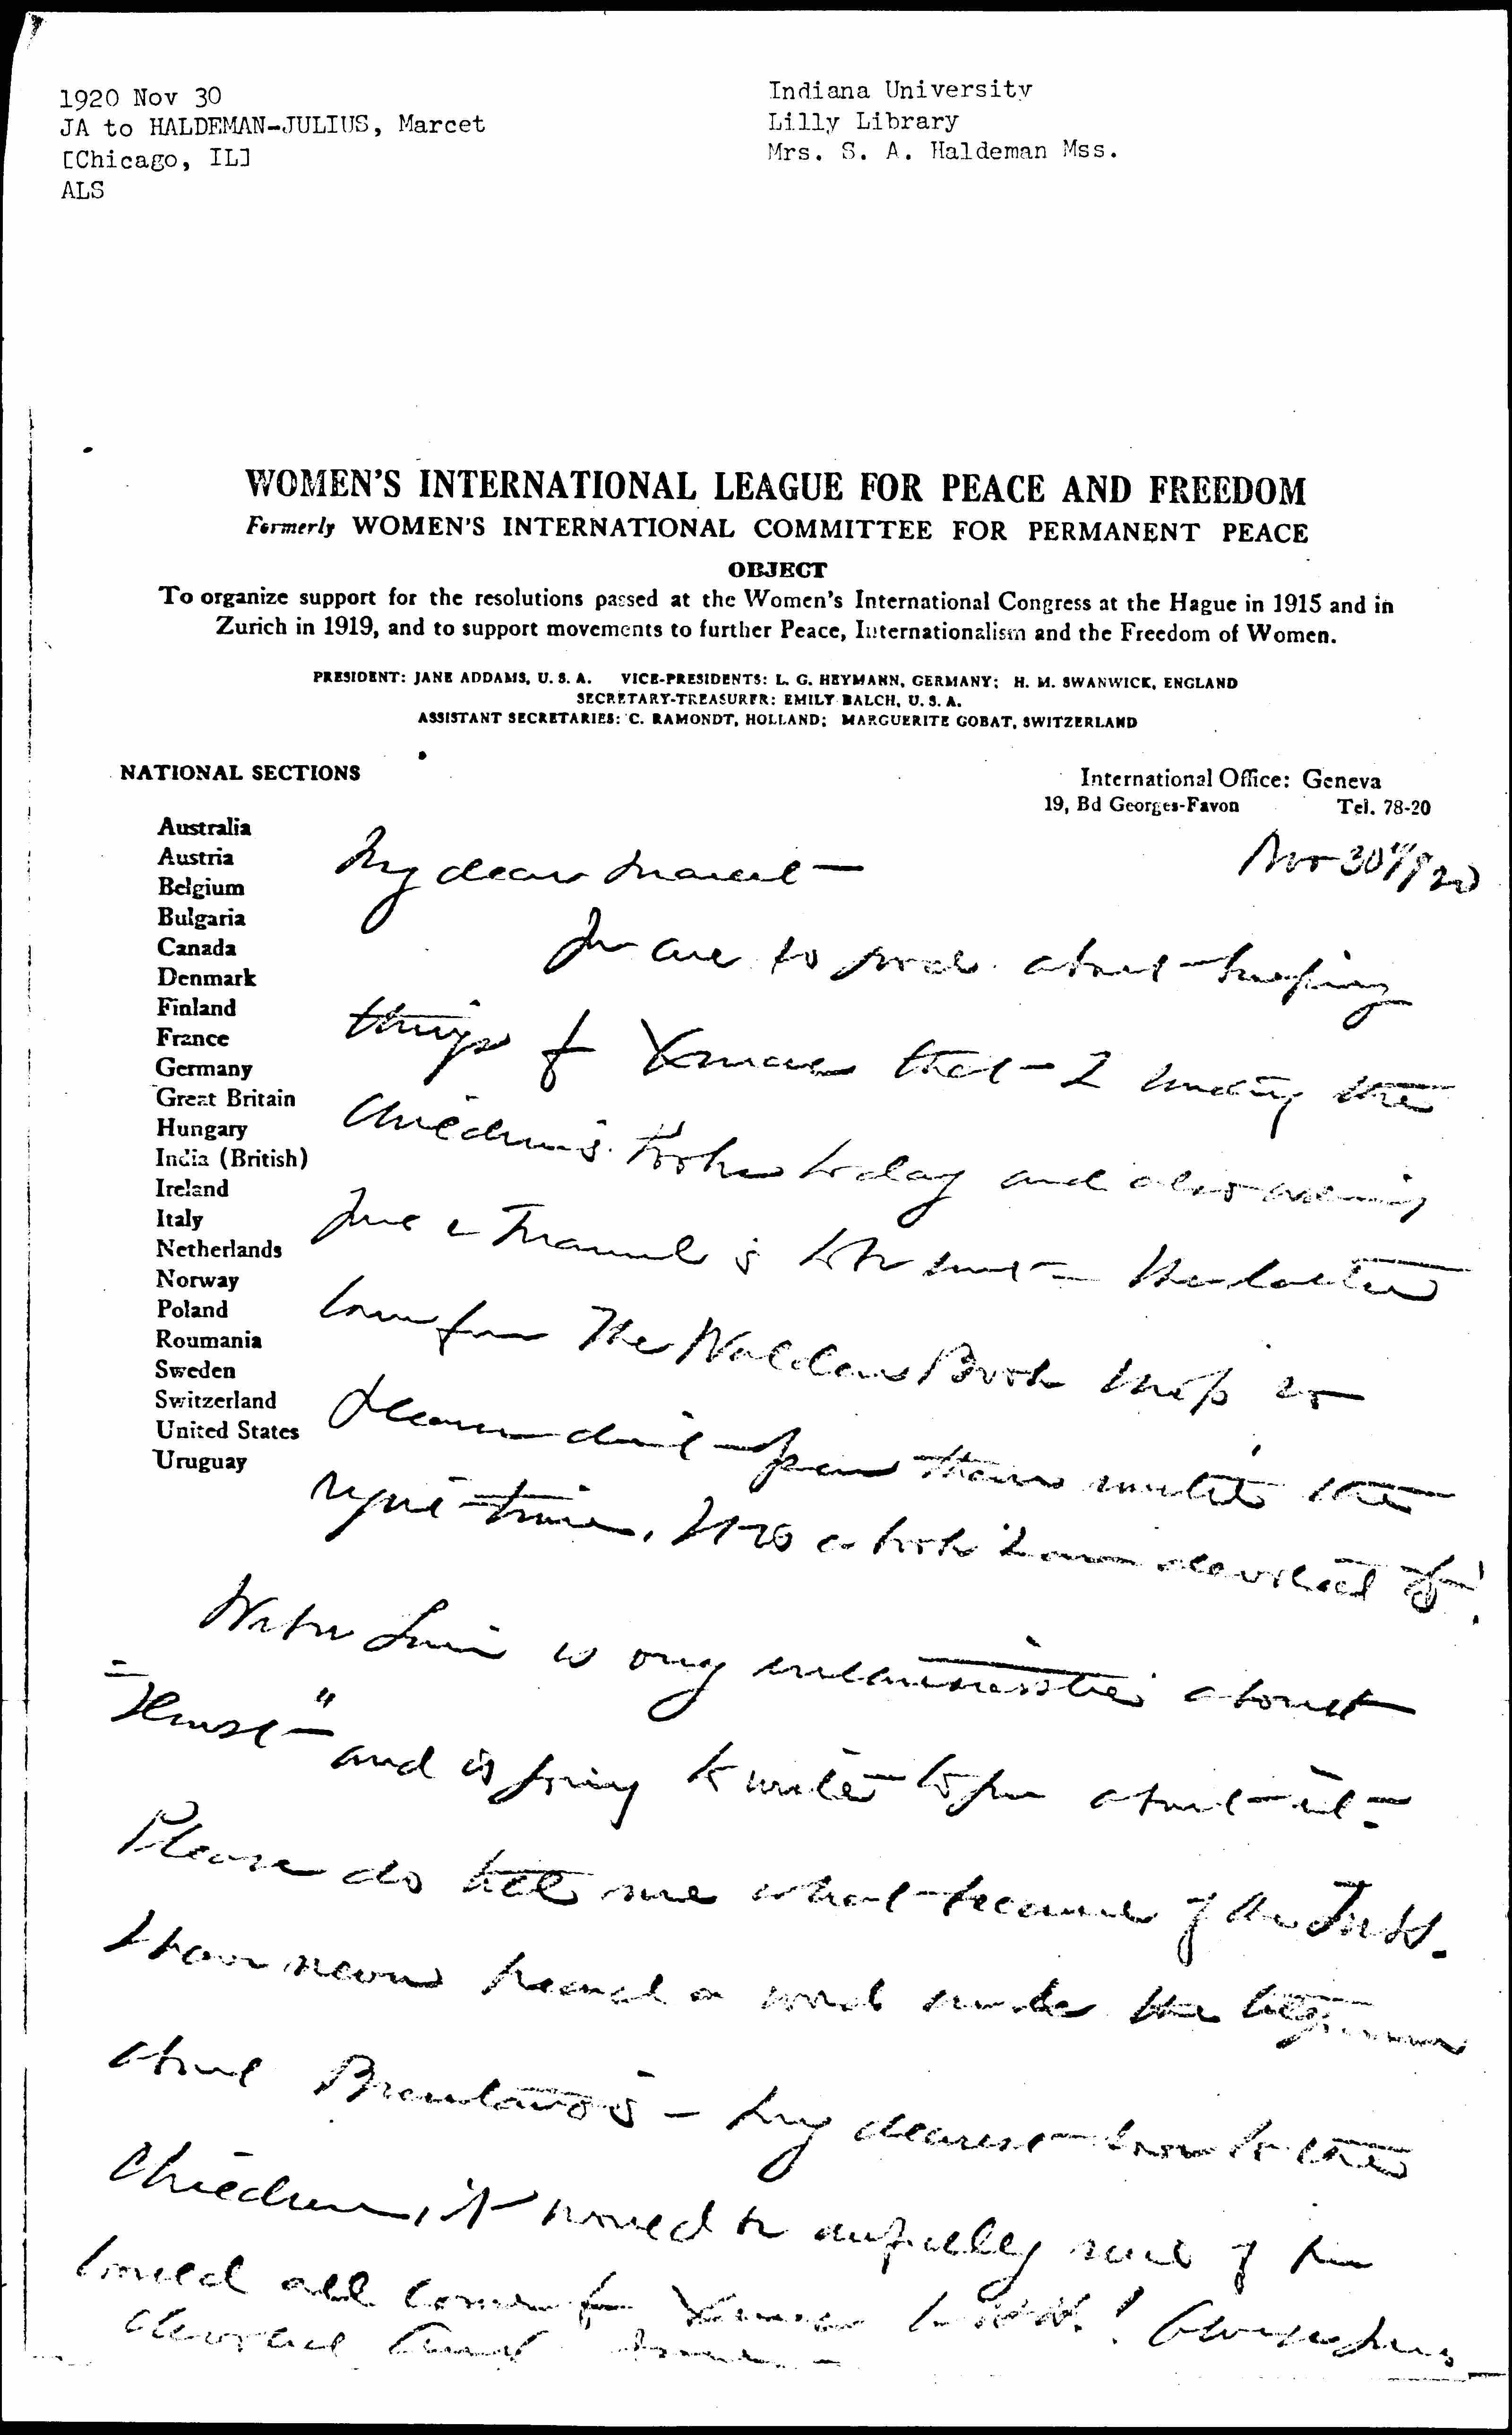 1920 Nov 30
JA to HALDEMAN-JULIUS, Marcet
[Chicago, IL]
ALS
Indiana University
Lilly Library
Mrs. S. A. Haldeman Mss.
WOMEN'S INTERNATIONAL LEAGUE FOR PEACE AND FREEDOM
Formerly WOMEN'S INTERNATIONAL COMMITTEE FOR PERMANENT PEACE
OBJECT
To organize support for the resolutions passed at the Women's International Congress at the Hague in 1915 and in
Zurich in 1919, and to support movements to further Peace, Internationalism and the Freedom of Women.
PRESIDENT: JANE ADDAMS, U. S. A. VICE-PRESIDENTS: L. G. HEYMANN, GERMANY; H. M. SWANWICK, ENGLAND
SECRETARY-TREASURER: EMILY BALCH, U. S. A.
ASSISTANT SECRETARIES: C. RAMONDT, HOLLAND; MARGUERITE GOBAT, SWITZERLAND
NATIONAL SECTIONS
Australia
Austria
Belgium
Bulgaria
Canada
Denmark
Finland
France
Germany
Great Britain
Hungary
India (British)
Ireland
Italy
Netherlands
Norway
Poland
Roumania
Sweden
Switzerland
United States
Uruguay
International Office: Geneva
19, Bd Georges-Favon Tel. 78-20
Nov 30" 1920
My dear Marcet —
You are so good about keeping
things for Xmas that I am sending the
children's books today and also asking
to be sent — the latter
from The Walden Book Shop so
please don't open them until the
right time. It is a book I am devoted to!
Weber Linn is very enthusiastic about
"Dust" and is going to write to you about it —
Please do tell me what became of the
I have never heard a word since the beginning
about Brentano's — My dearest love to the
children, it would be awfully nice if you
could all come for Xmas to H.H.! Always your
devoted Aunt Jane —